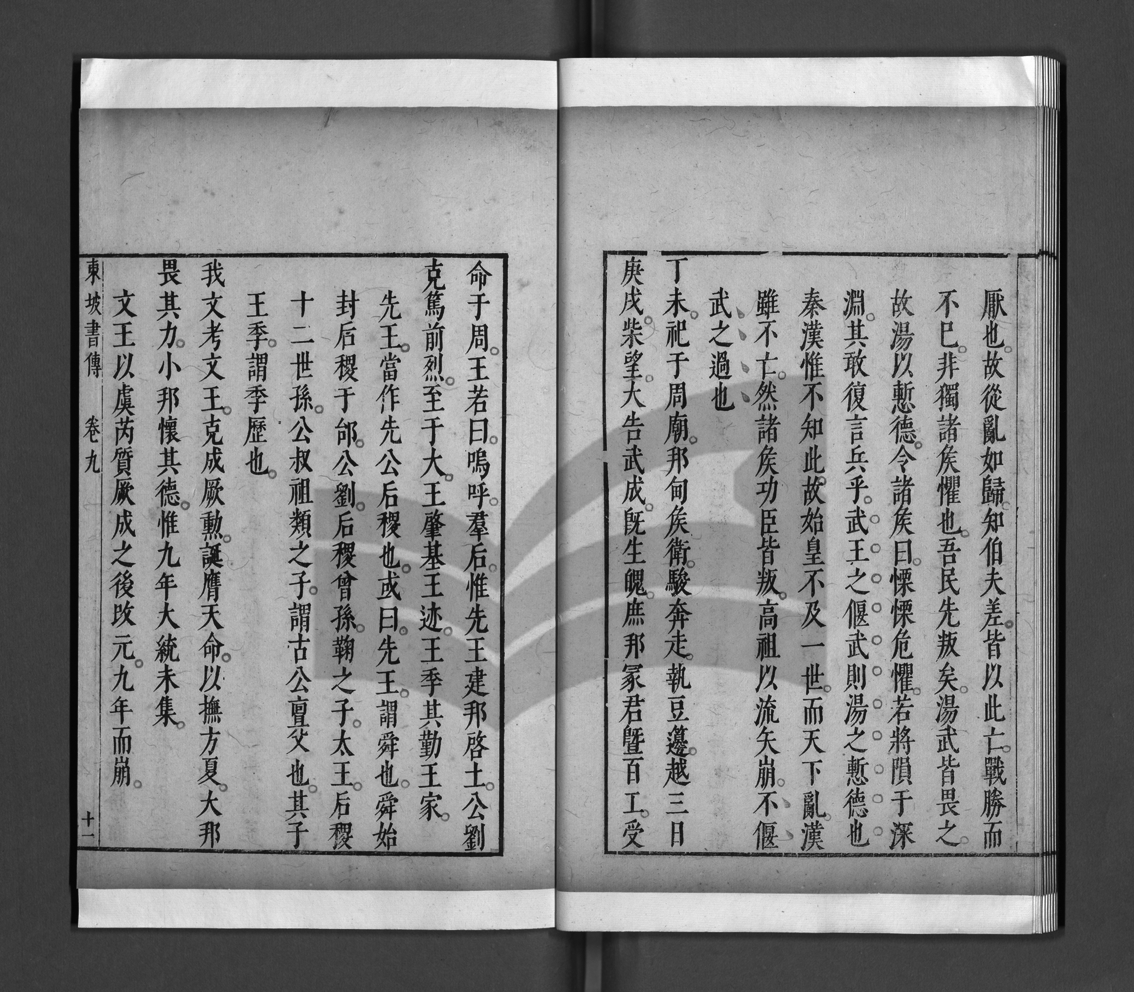 厭也故從亂如歸知伯夫差皆以此亡戰勝而
不已非獨諸矦懼也吾民先叛矣湯武皆畏之
故湯以慙德令諸矦曰慄慄危懼若將隕于深
淵其敢復言兵乎武王之偃武則湯之慙德也
秦漢惟不知此故始皇不及一世而天下亂漢
雖不亡然諸矦功臣皆叛高祖以流矢崩不偃
武之過也
丁未祀于周廟邦甸矦衛駿奔走執豆籩越三日
庚戌柴望大告武成旣生魄庶邦冢君曁百工受
命于周王若曰嗚呼羣后惟先王建邦啓土公劉
克篤前烈至于大王肇基王迹王季其勤王家
先王當作先公后稷也或曰先王謂舜也舜始
封后稷于邰公劉后稷曾孫鞠之子太王后稷
十二世孫公叔祖類之子謂古公亶父也其子
王季謂季歷也
我文考文王克成厥勳誕膺天命以撫方夏大邦
畏其力小邦懷其德惟九年大統未集
文王以虞芮質厥成之後攺元九年而崩
東坡書傳 卷九 十一